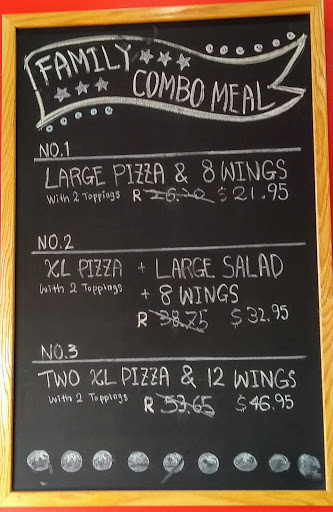 FAMILY
COMBO MEAL
NO.1
LARGE PIZZA & 8 WINGS
With 2 Toppings R 26.20 $21.95
NO.2
XL PIZZA + LARGE SALAD
With 2 Toppings + 8 WINGS
R 38.75 $32.95
NO.3
TWO XL PIZZA & 12 WINGS
With 2 Toppings R 53.65 $46.95